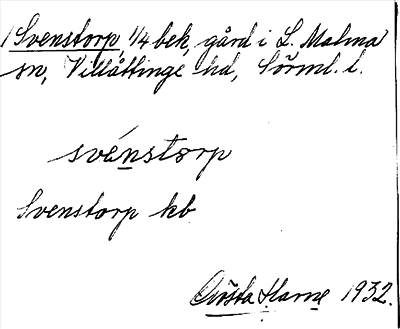 1 Svenstorp, 1/4 bek, gård i L. Malma
sn, Villåttinge hd, Sörml. l.
svénstorp
Svenstorp kb
Gösta Harne 1932.